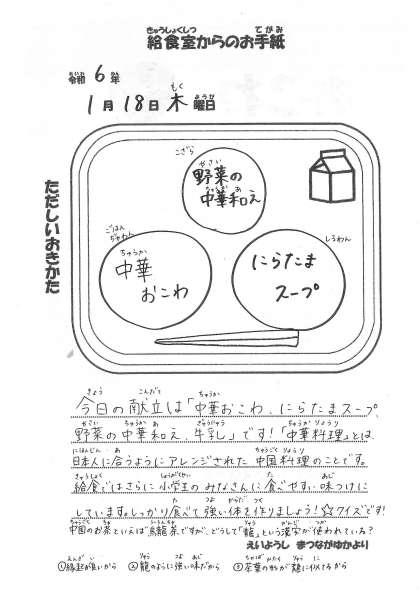 給食室からのお手紙
令和6年
1月18日木曜日
ただしいおきかた
こざら
野菜の
中華和え
ごはん
ぢゃわん
中華
おこわ
しるわん
にらたま
スープ
今日の献立は「中華おこわ、にらたまスープ、
野菜の中華和え、牛乳」です!「中華料理」とは、
日本人に合うようにアレンジされた中国料理のことです。
給食ではさらに小学生のみなさんに食べやすい味つけに
しています。しっかり食べて強い体を作りましょう!☆クイズです!
中国のお茶といえば「烏龍茶」ですが、どうして「龍」という漢字が使われている?
えいようし まつながゆかより
①縁起が良いから ②龍のように強い味だから ③茶葉の形が龍に似てるから